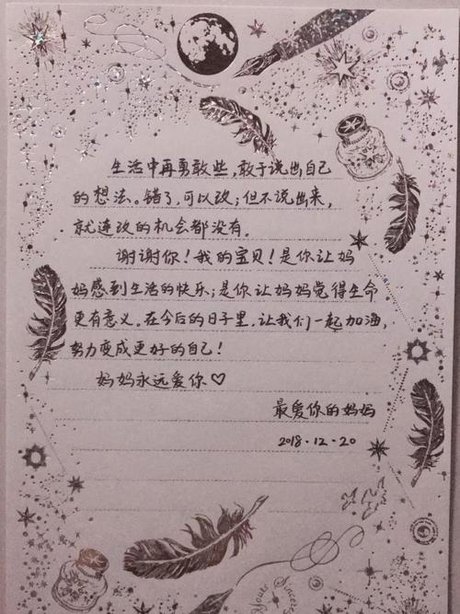 生活中再勇敢些，敢于说出自己
的想法。错了，可以改；但不说出来，
就连改的机会都没有。
谢谢你！我的宝贝！是你让妈
妈感到生活的快乐；是你让妈妈觉得生命
更有意义。在今后的日子里，让我们一起加油，
努力变成更好的自己！
妈妈永远爱你♡
最爱你的妈妈
2018.12.20